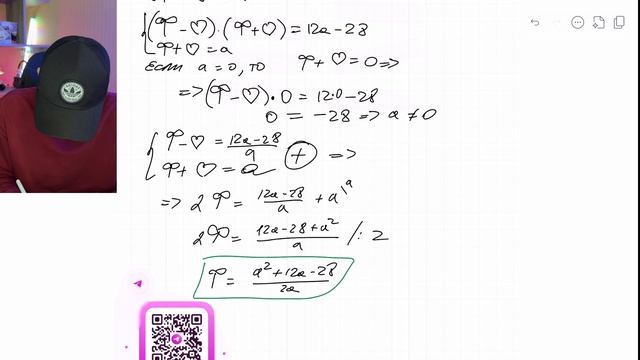 (φ - ♡)·(φ + ♡) = 12a - 28
φ + ♡ = a
Если a = 0, то φ + ♡ = 0 =>
=> (φ - ♡)·0 = 12·0 - 28
0 = -28 => a ≠ 0
φ - ♡ = (12a - 28)/a
φ + ♡ = a (+) =>
=> 2φ = (12a - 28)/a + a\a
2φ = (12a - 28 + a²)/a /: 2
φ = (a² + 12a - 28)/2a